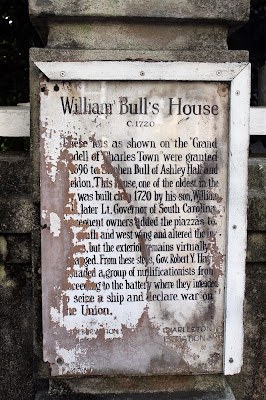 William Bull's House
C. 1720
as shown on the "Grand
dell of Charles Town" were granted
696 to Stephen Bull of Ashley Hall and
eldon. This house, one of the oldest in the
was built circa 1720 by his son, William
later Lt. Governor of South Carolina.
equent owners added the piazzas to
uth and west wing and altered the in
s, but the exterior remains virtually
anged. From these steps, Gov. Robert Y. Ha
uaded a group of nullificationists from
oceeding to the battery where they intended
o seize a ship and declare war on
the Union.
PRESERVATION
CHARLESTON